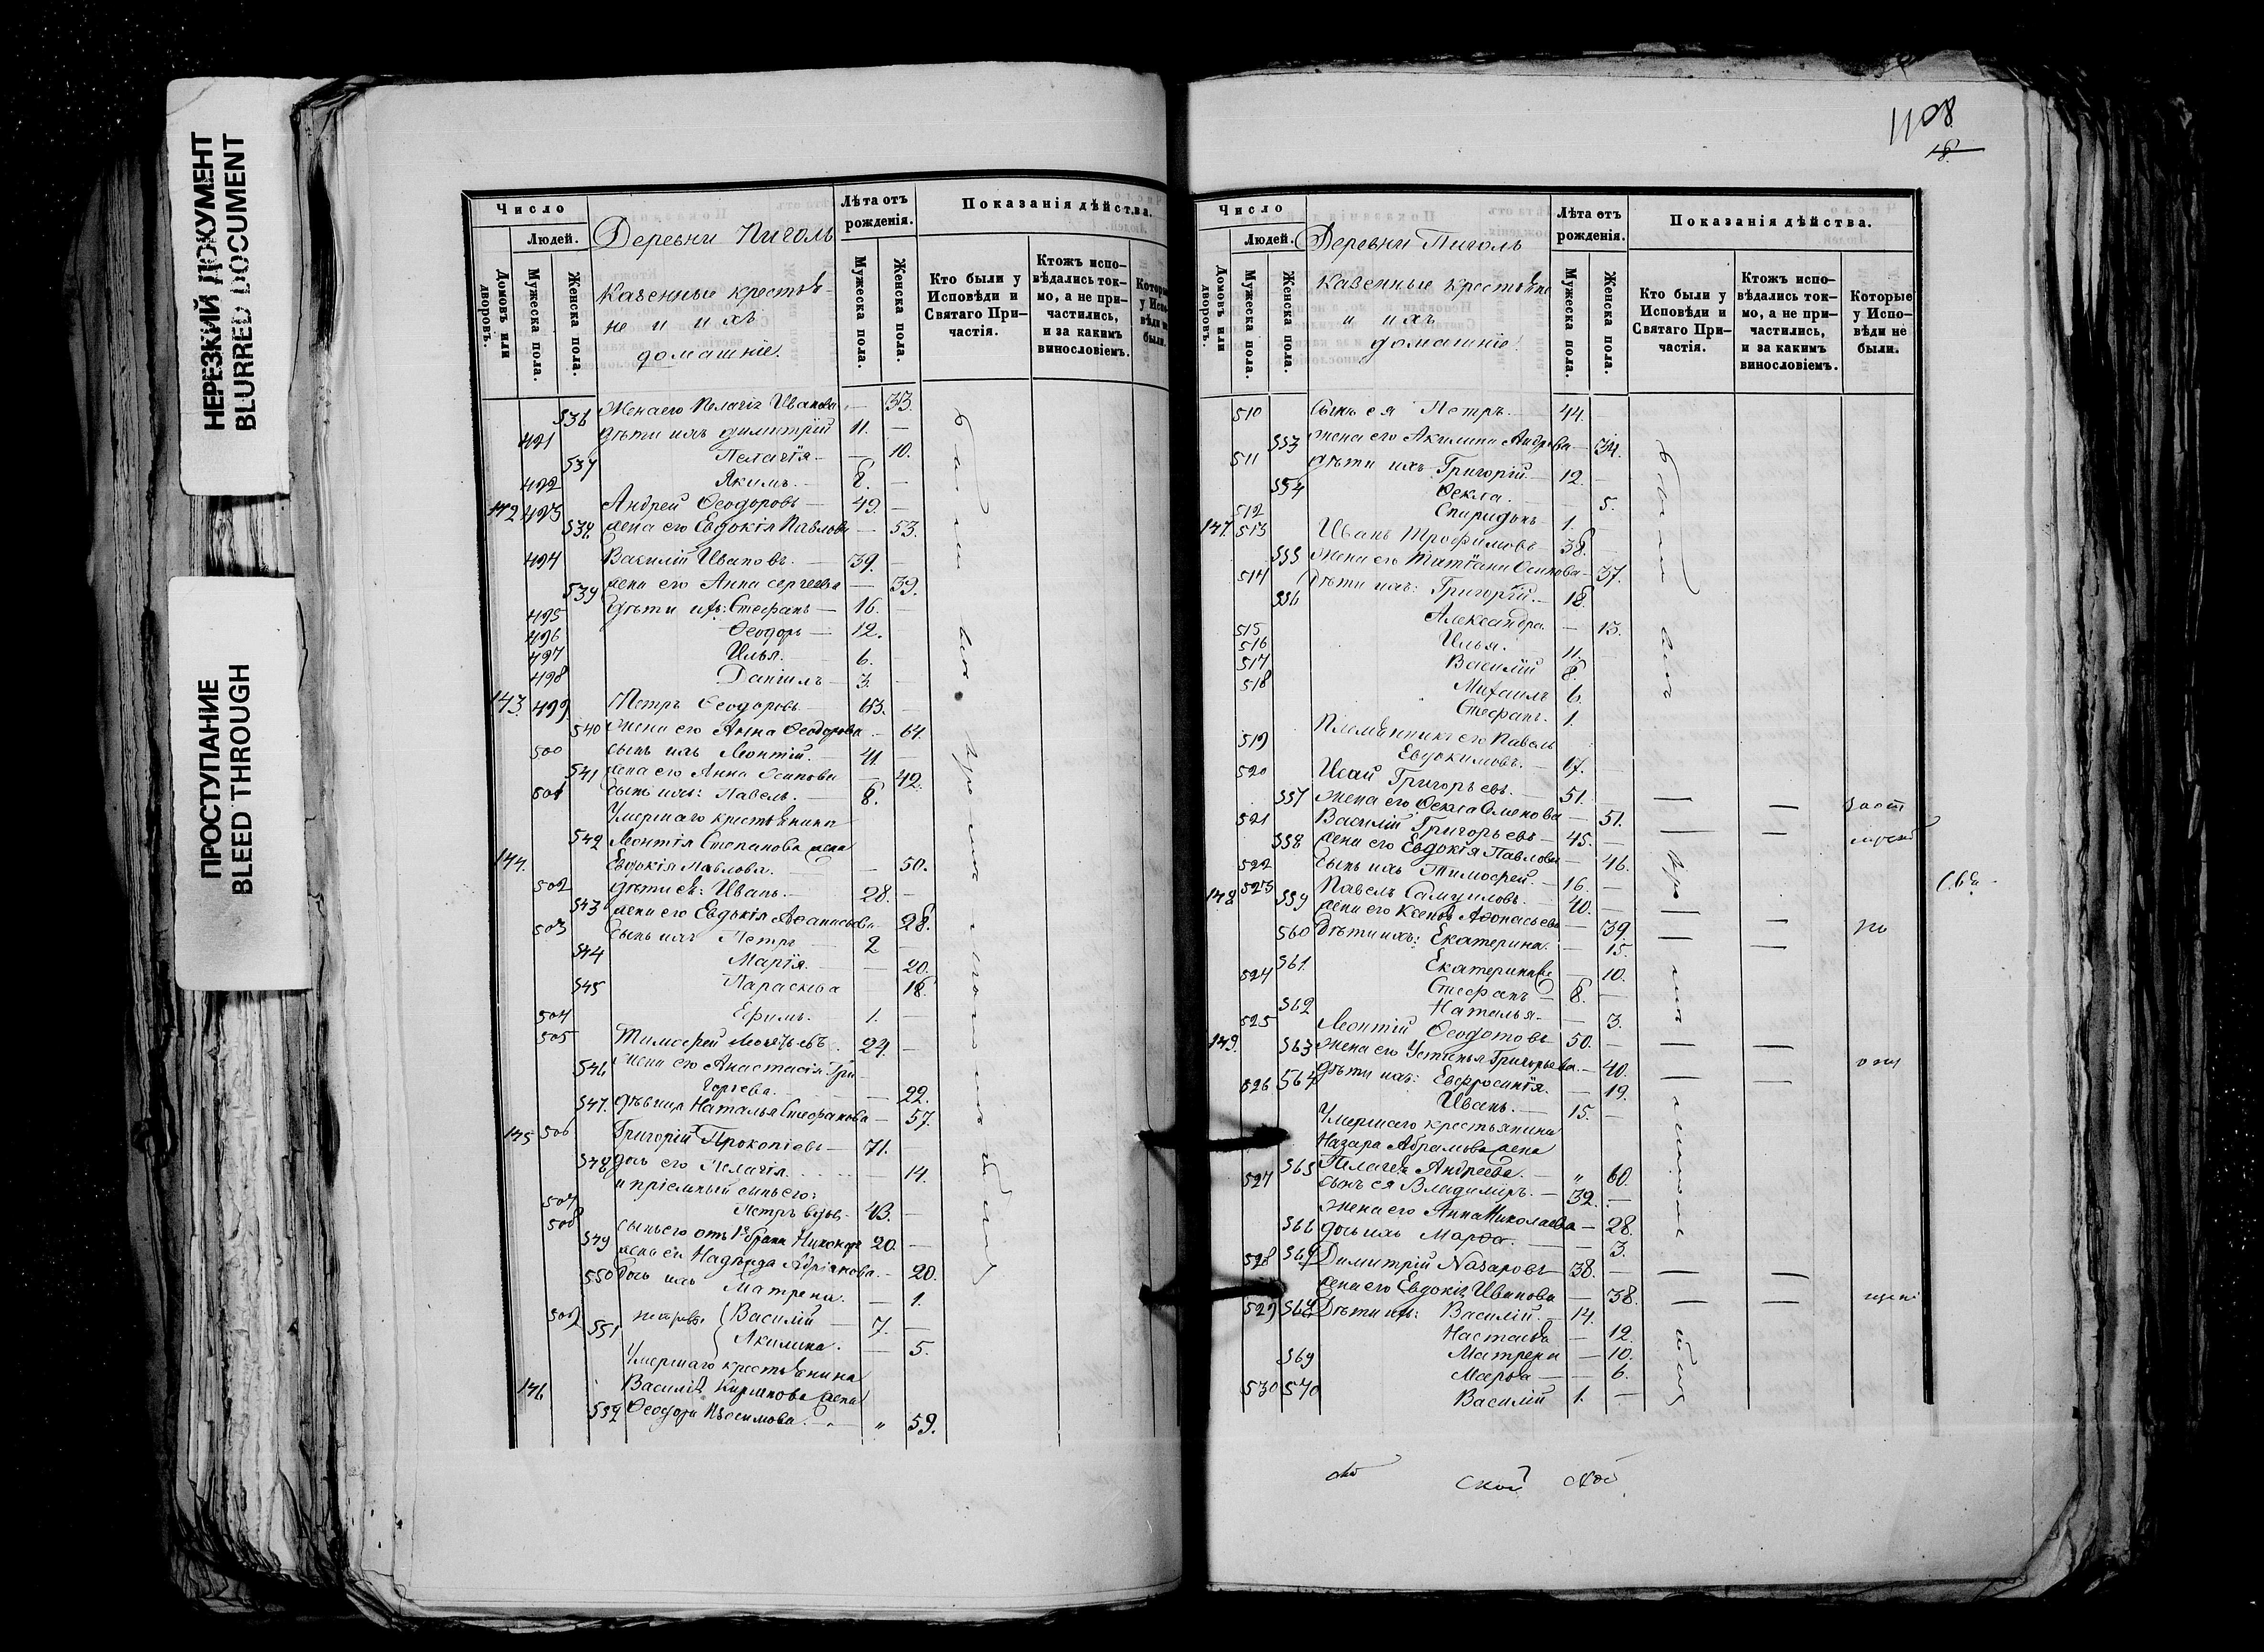 НЕРЕЗКИЙ ДОКУМЕНТ
BLURRED DOCUMENT
ПРОСТУПАНИЕ
BLEED THROUGH
Число
Людей.
Домовъ или дворовъ.
Мужеска пола.
Женска пола.
Деревни Пиголь
казенные крестья-
не и ихъ
домашніе.
Лѣта отъ рожденія.
Мужеска пола.
Женска пола.
Показанія дѣйства.
Кто были у Исповѣди и Святаго Причастія.
Ктожъ исповѣдались токмо, а не причастились, и за какимъ винословіемъ.
536 Жена его Пелагія Иванова — 33.
491 дѣти ихъ Димитрій 11. —
537 Пелагія — — 10.
492 Якимъ — 8. —
142 493 Андрей Ѳеодоровъ — 49. —
538 жена его Евдокія Павлова — 53.
494 Василій Ивановъ — 39. —
539 жена его Анна Сергеева — 39.
495 дѣти ихъ: Стефанъ — 16. —
496 Ѳеодоръ — 12. —
497 Илья. 6.
498 Даніилъ — 3. —
143. 499 Петръ Ѳеодоровъ — 63. —
540 жена его Анна Ѳеодорова — 64.
500 сынъ ихъ Леонтій. 41. —
541 жена его Анна Осипова — 42.
501 сынъ ихъ: Павелъ. — 8.
Умершаго крестьянина
542 Леонтія Степанова жена
144. Евдокія Павлова. — 50.
502 дѣти ея: Иванъ. — 28. —
543 жена его Евдокія Аѳанасьева 28.
503 сынъ ихъ Петръ — 2
544 Марія. — 20.
545 Параскева 18.
504 Ефимъ. 1. —
505 Тимоѳей Леонтьевъ 24. —
546 жена его Анастасія Гри-
горьева. — 22.
547. дѣвица Наталья Стефанова — 57.
145 506 Григорій Прокопіевъ — 71.
548 дочь его Пелагія. — 14.
и пріемный сынъ его:
507 Петръ вдов. 43. —
508 сынъ его отъ 1го брака Никоноръ 20. —
549 жена его Надежда Адріанова. — 20.
550 дочь ихъ Матрена. — 1.
509 Василій — 7. —
551 Акилина. — 5.
Умершаго крестьянина
146 Василія Кирикова жена
552 Ѳеодора Изосимова. — " 59.
1108
18.
Число
Людей.
Домовъ или дворовъ.
Мужеска пола.
Женска пола.
Деревни Пиголь
казенные крестьяне
и ихъ
домашніе.
Лѣта отъ рожденія.
Мужеска пола.
Женска пола.
Показанія дѣйства.
Кто были у Исповѣди и Святаго Причастія.
Ктожъ исповѣдались токмо, а не причастились, и за какимъ винословіемъ.
Которые у Исповѣди не были.
510 Сынъ ея Петръ — 44.
553 жена его Акилина Андреева — 34.
511 дѣти ихъ Григорій — 12. —
554 Ѳекла. — 5.
512 Спиридонъ — 1. —
147. 513 Иванъ Трофимовъ — 38. —
555 жена его Татіана Осипова — 37.
514 Дѣти ихъ: Григорій — 18.
556 Александра — 13.
515 Илья. 11.
516 Василій 8.
517 Михаилъ 6.
518 Стефанъ. 1.
Племянникъ его Павелъ
519 Евдокимовъ. — 17.
520 Исай Григорьевъ. — 51.
557 жена его Ѳекла Семенова — 51.
521 Василій Григорьевъ — 45. —
558 жена его Евдокія Павлова — 46.
522 сынъ ихъ Тимоѳей. — 16. —
148 523 Павелъ Самуиловъ — 40. —
559 жена его Ксенія Аѳанасьева — 39
560 Дѣти ихъ: Екатерина. — 15.
561. Екатерина — 10.
524 Стефанъ — 8. —
562 Наталья. — 3.
149. 525 Леонтій Ѳеодотовъ 50. —
563 жена его Устинья Григорьева. — 40.
564 дѣти ихъ: Евфросинія. — 19.
526 Иванъ. — 15. —
Умершаго крестьянина
Назара Абрамова жена
565 Пелагея Андреева. — " 60.
527 сынъ ея Владимиръ. — 32. —
жена его Анна Николаева — 28.
566 дочь ихъ Марѳа. — 3.
528 Димитрій Назаровъ — 38. —
жена его Евдокія Иванова — 38.
529 Дѣти ихъ: Василій. — 14.
12.
569 Матрена — 10.
570 Марѳа — 6.
530 Василій 1. —
ской